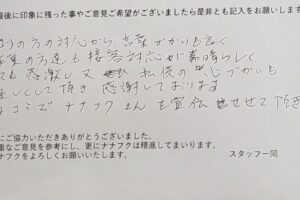 最後に印象に残った事やご意見ご希望がございましたら是非とも記入をお願いします
の方の対応から言葉づかいも良く
の方達も接客対応が素晴らしく
も感激し又 私後の 心づかいも
して頂き感謝しております
コミでナナフクさんを宣伝させて頂き
にご協力いただきありがとうございました。
重なご意見を参考にし、更にナナフクは精進してまいります。
ナナフクをよろしくお願いいたします。
スタッフ一同